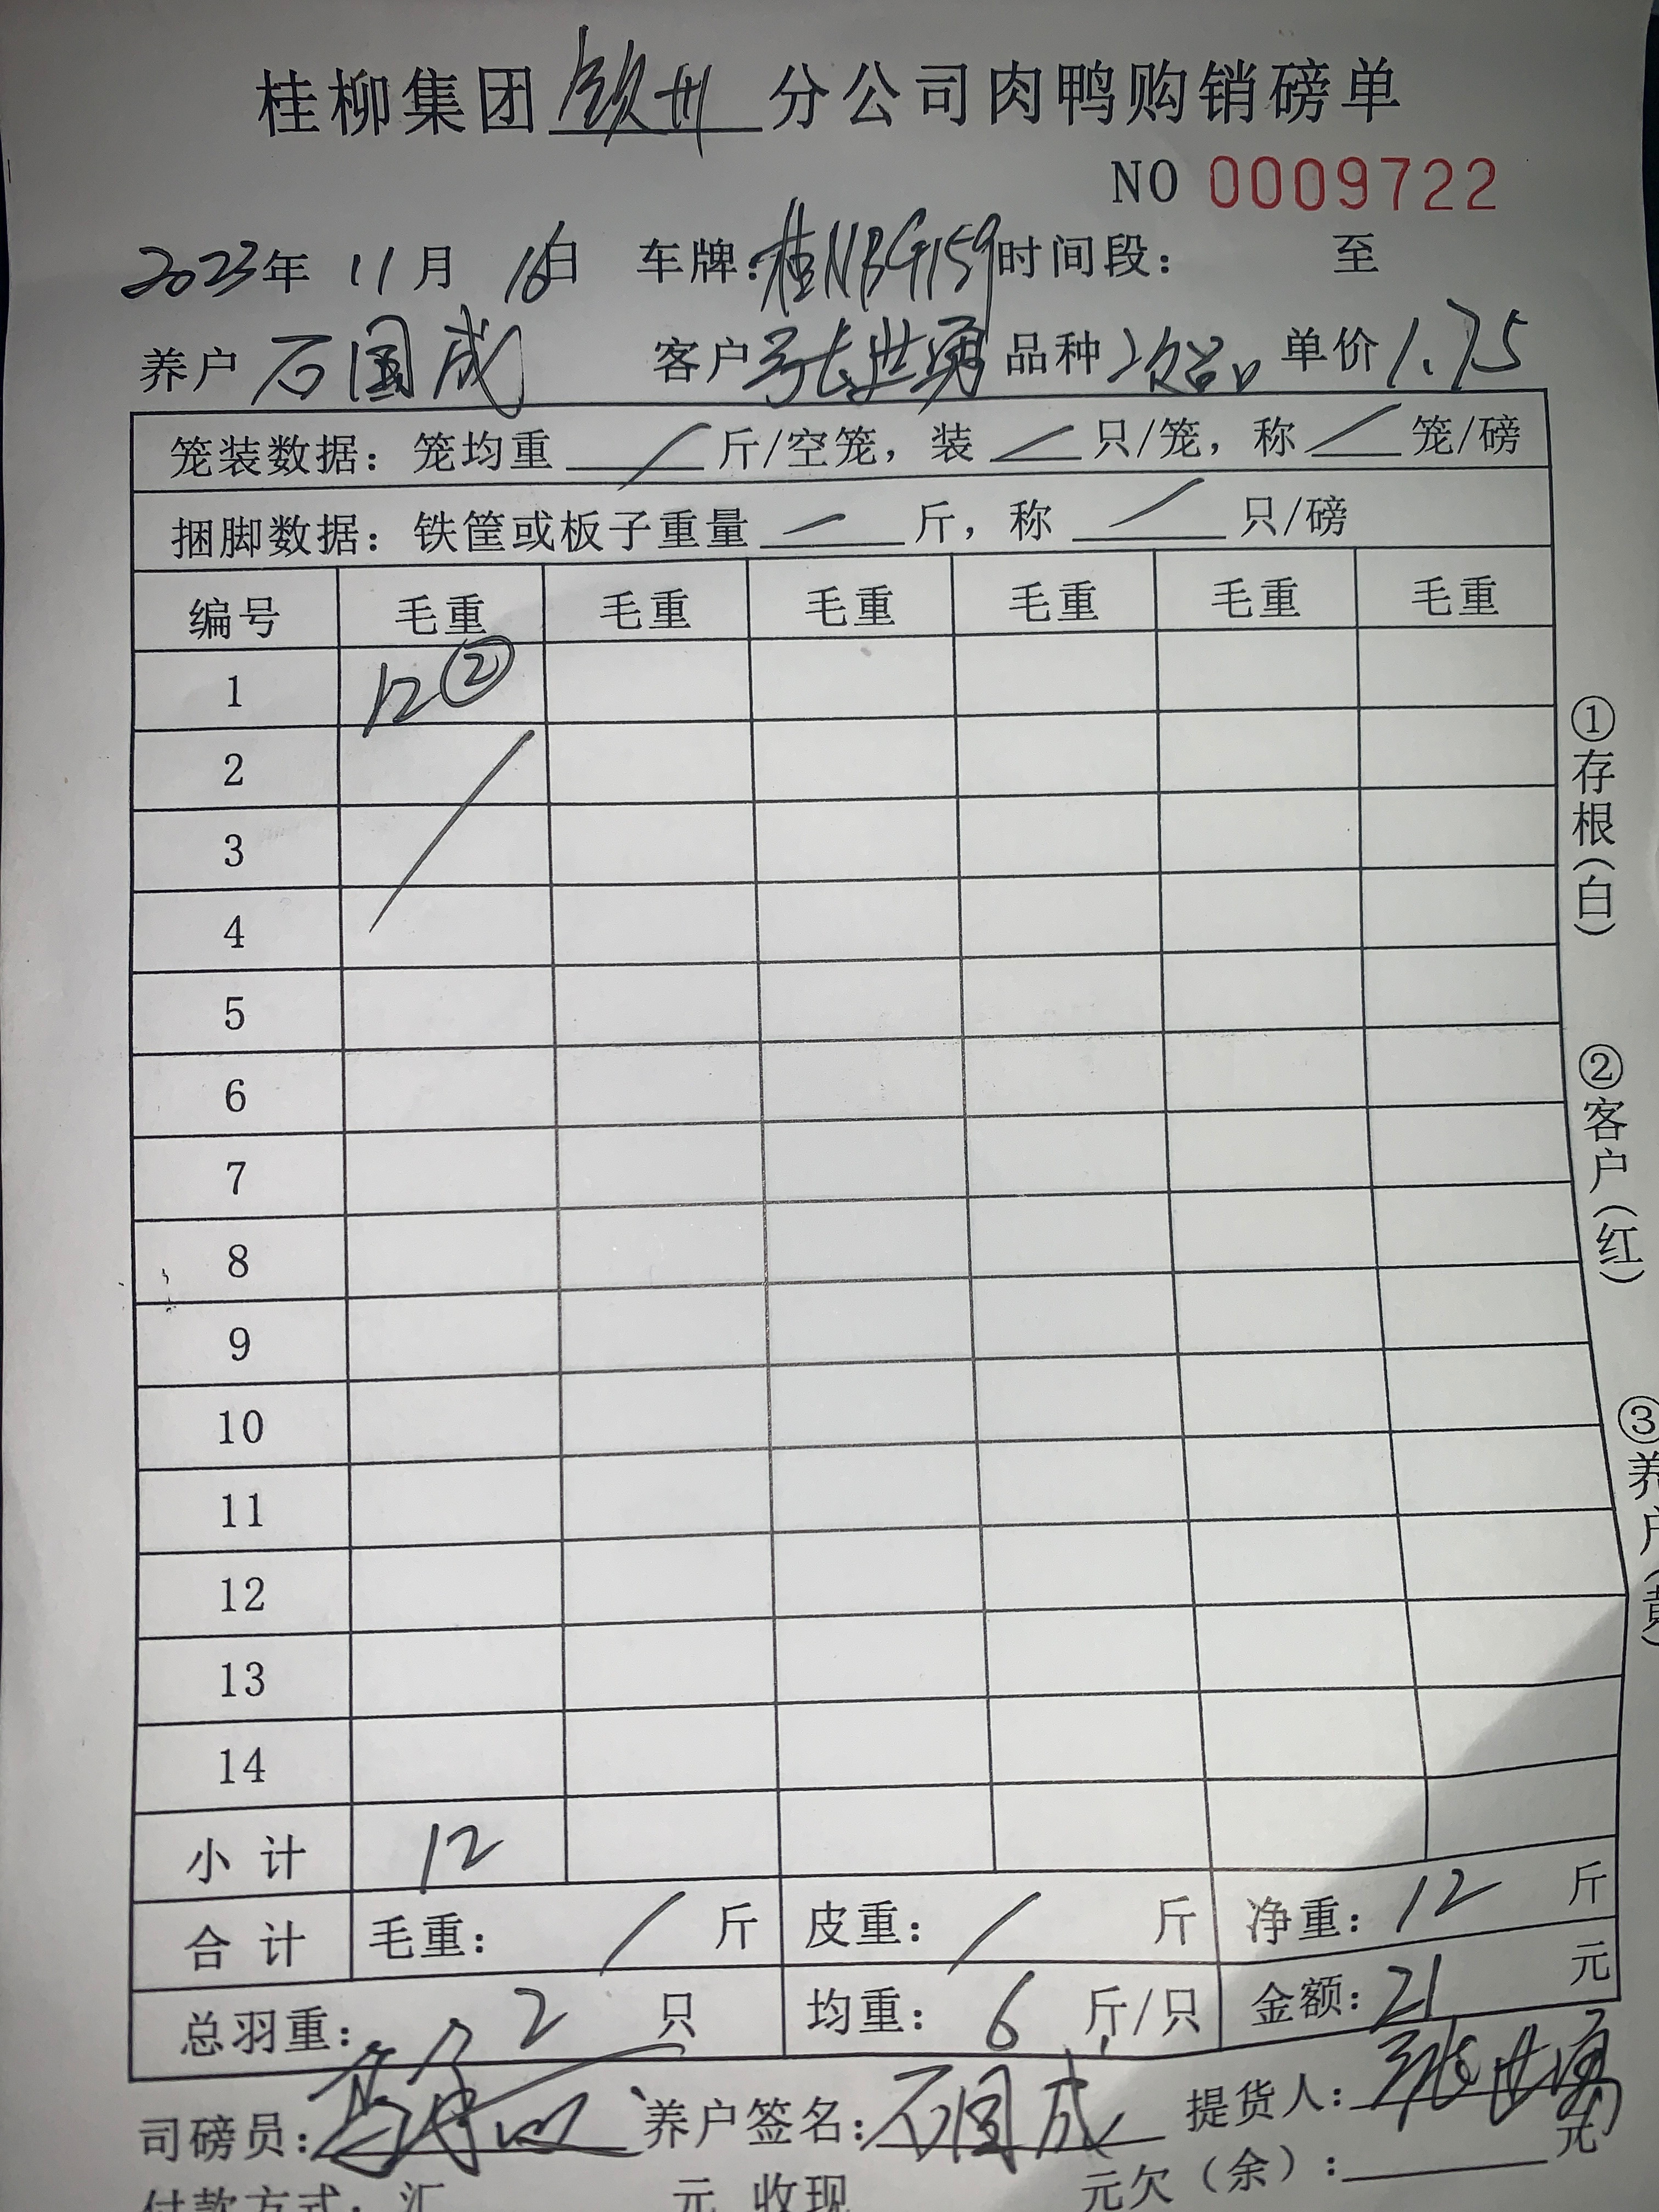 桂柳集团 钦州 分公司肉鸭购销磅单
NO 0009722
2023年 11月 16日 车牌:桂NBG159 时间段: 至
养户 石国成 客户 张世勇 品种 次品 单价 1.75
笼装数据: 笼均重 / 斤/空笼, 装 / 只/笼, 称 / 笼/磅
捆脚数据: 铁筐或板子重量 / 斤, 称 / 只/磅
编号 毛重 毛重 毛重 毛重 毛重 毛重
1 12 ②
2
3
4
5
6
7
8
9
10
11
12
13
14
小计 12
合计 毛重: / 斤 皮重: / 斤 净重: 12 斤
总羽重: 2 只 均重: 6 斤/只 金额: 21 元
司磅员: 养户签名: 石国成 提货人: 张世勇
付款方式: 汇 元 收现 元欠(余): 元
①存根(白)
②客户(红)
③养户(黄)